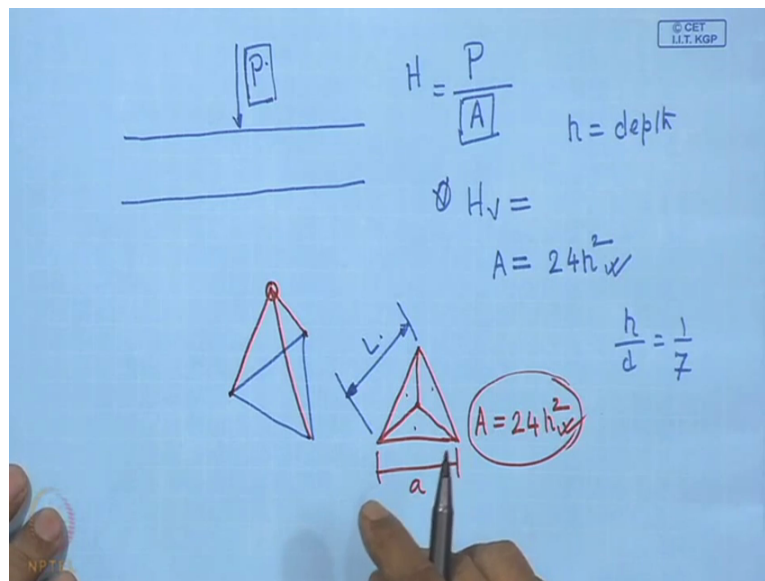 © CET
I.I.T. KGP
P.
H = P / A
h = depth
Hv =
A = 24h²
h/d = 1/7
L.
A = 24h²
a
NPTEL